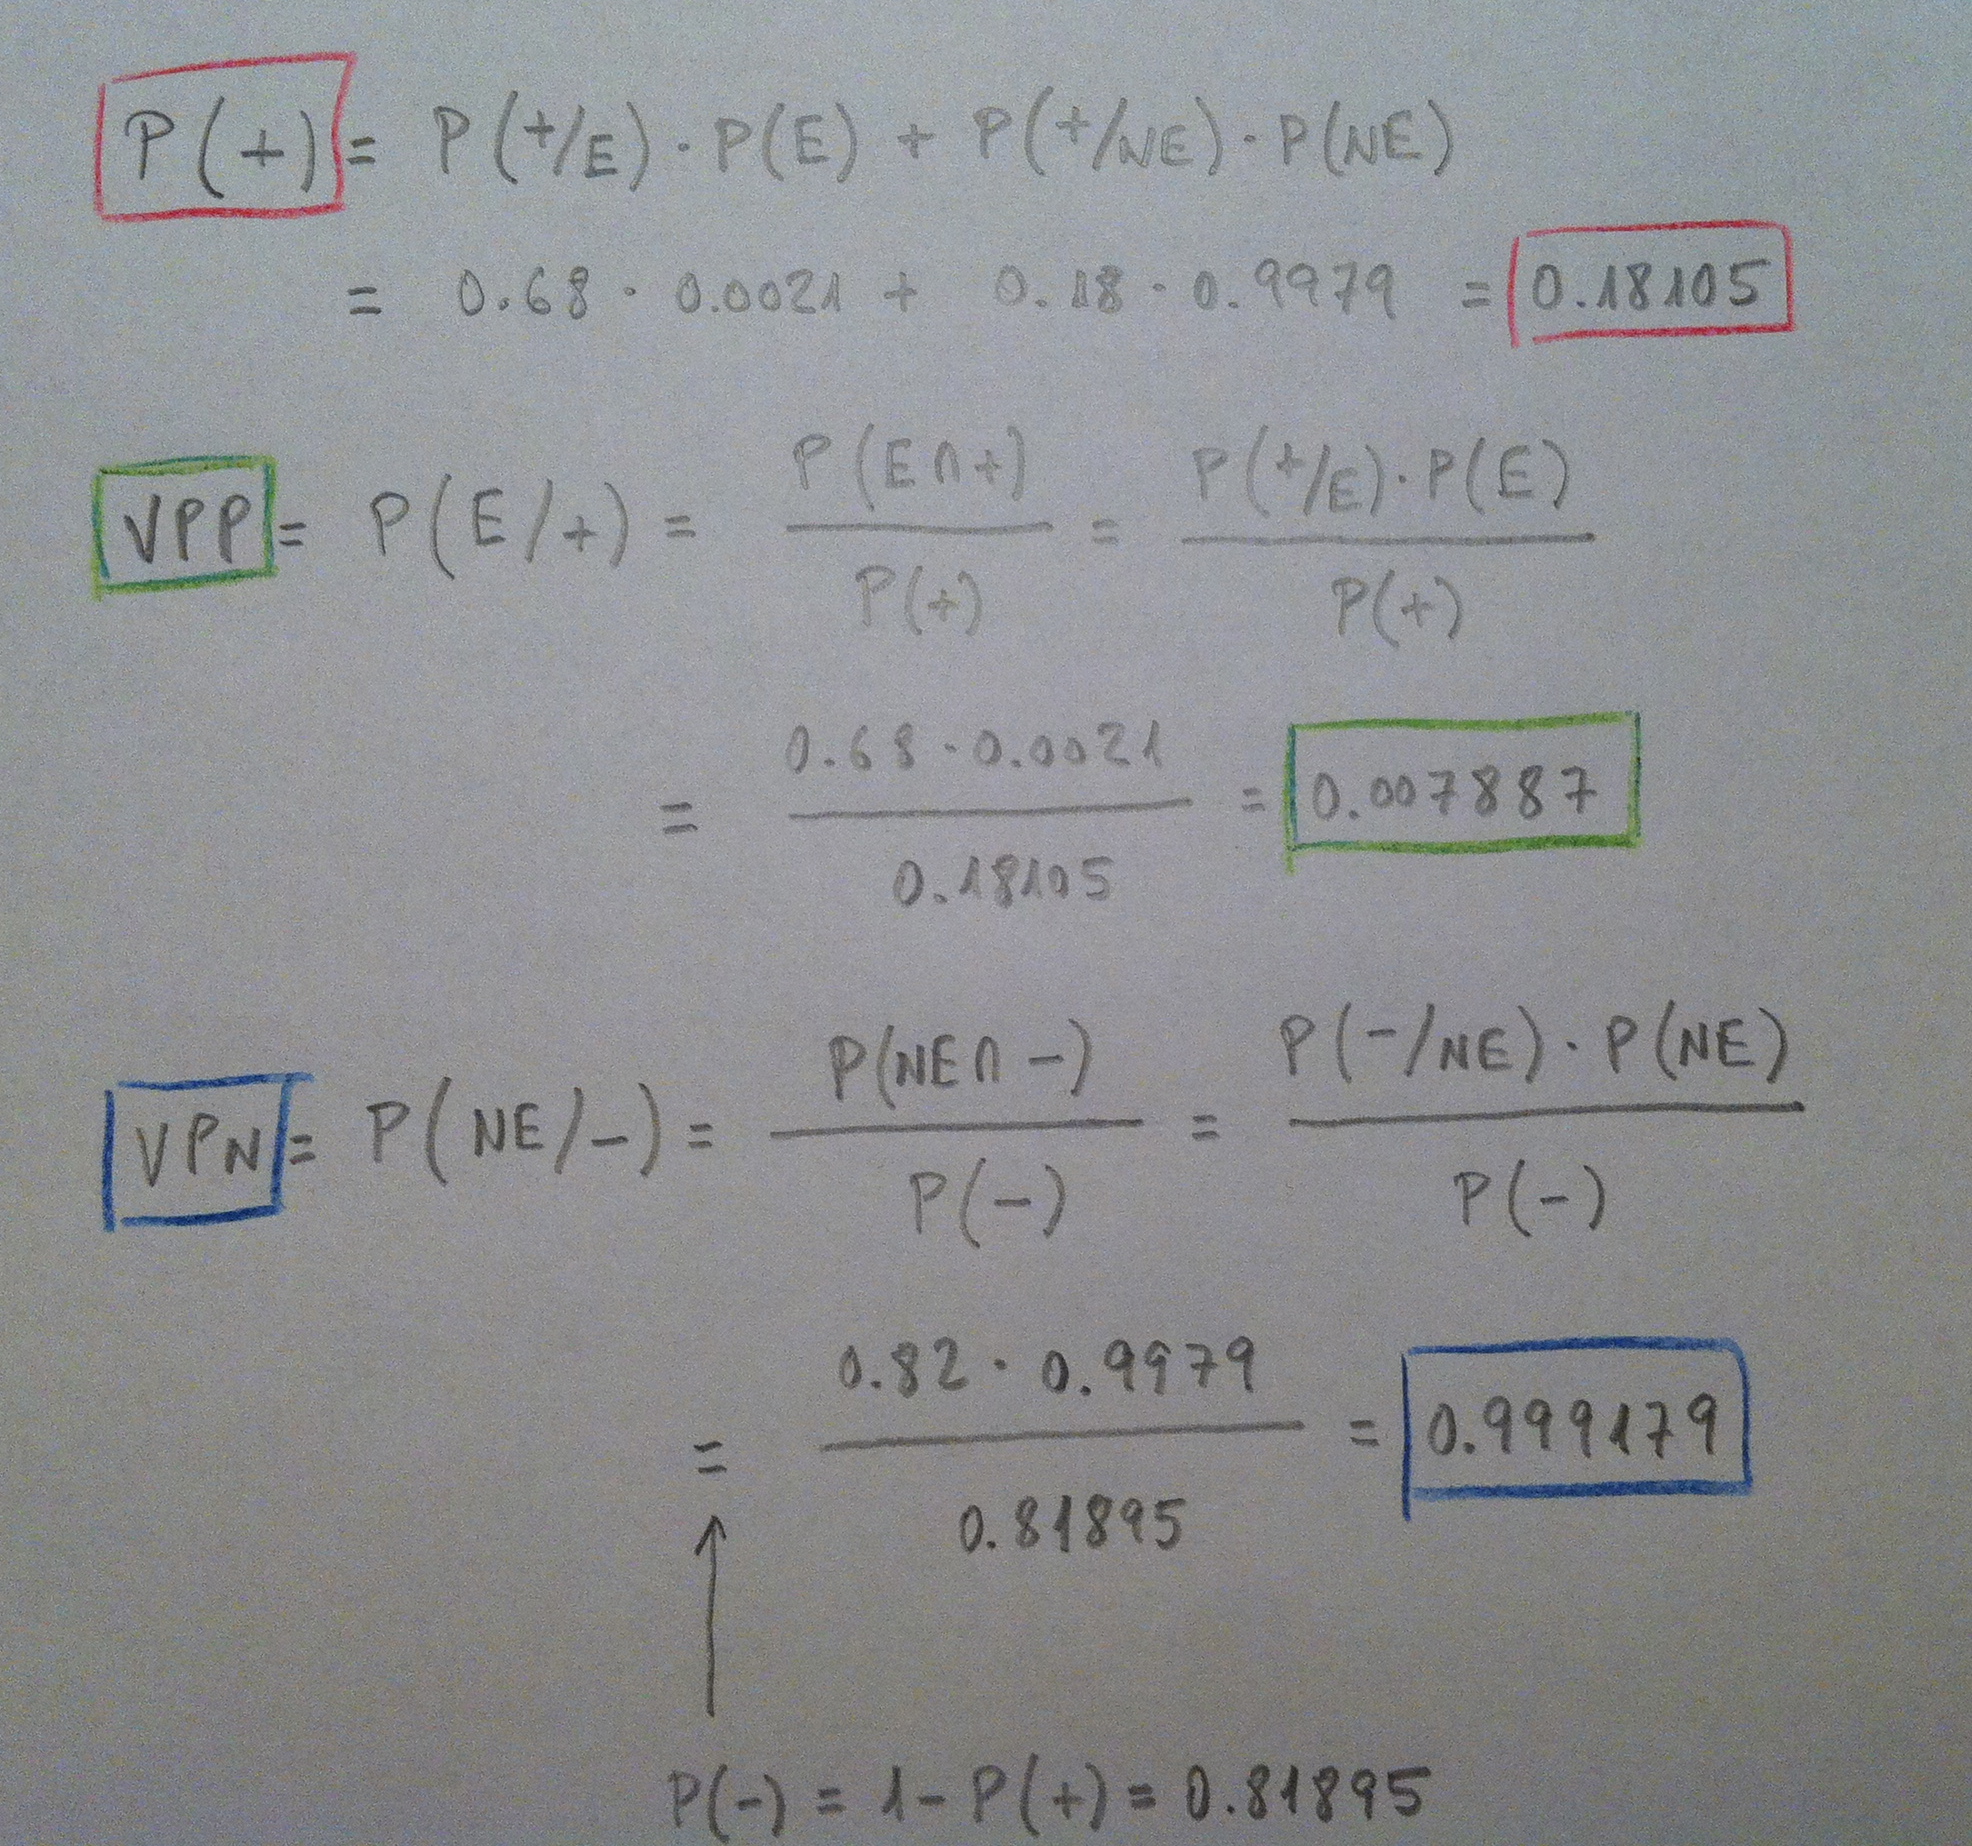 P(+) = P(+/E) · P(E) + P(+/NE) · P(NE)
= 0.68 · 0.0021 + 0.18 · 0.9979 = 0.18105
VPP = P(E/+) = P(E∩+) / P(+) = P(+/E) · P(E) / P(+)
= 0.68 · 0.0021 / 0.18105 = 0.007887
VPN = P(NE/-) = P(NE∩-) / P(-) = P(-/NE) · P(NE) / P(-)
= 0.82 · 0.9979 / 0.81895 = 0.999179
P(-) = 1 - P(+) = 0.81895